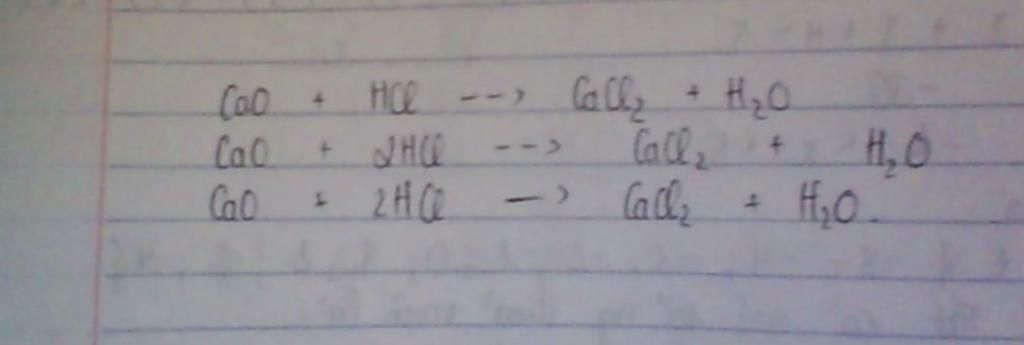 CaO + HCl --> CaCl₂ + H₂O
CaO + 2HCl --> CaCl₂ + H₂O
CaO + 2HCl —> CaCl₂ + H₂O.